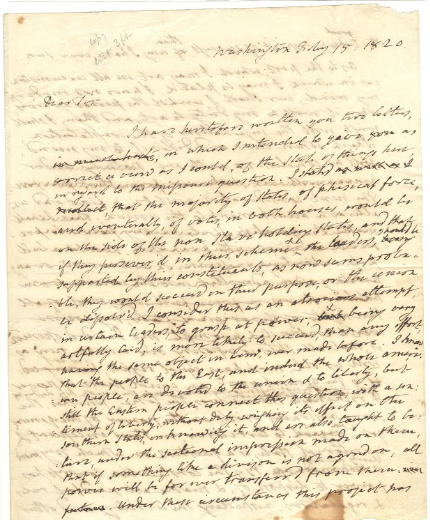 Washington Feby 15. 1820
Dear Sir
I have heretofore written you two letters,
in which I intended to give you as
correct a view as I could, of the State of things here
in regard to the Missouri question. I
that the majority of States, of phisical force,
and eventually of votes, in both houses, would be
on the side of the non slave holding States, and that
if they persever'd in their scheme, the leaders, should be
supported by their constituents, as now seems proba-
ble, they would succeed in their purpose, or the union
be dissolv'd. I consider this as an atrocious attempt
in certain leaders, to grasp at power, being very
artfully laid, is more likely to succeed than any effort
having the same object in view, ever made before. I know
that the people to the East, and indeed the whole ameri-
can people, are devoted to the union & to liberty, but
still the Eastern people connect the question with a sen-
timent of liberty, without duly weighing its effect on the
southern States, or knowing it, and are also taught to be-
lieve, under the sectional impression made on them
that if something like a division is not agreed on, all
power will be for ever transferr'd from them,
Under these circumstances this project has